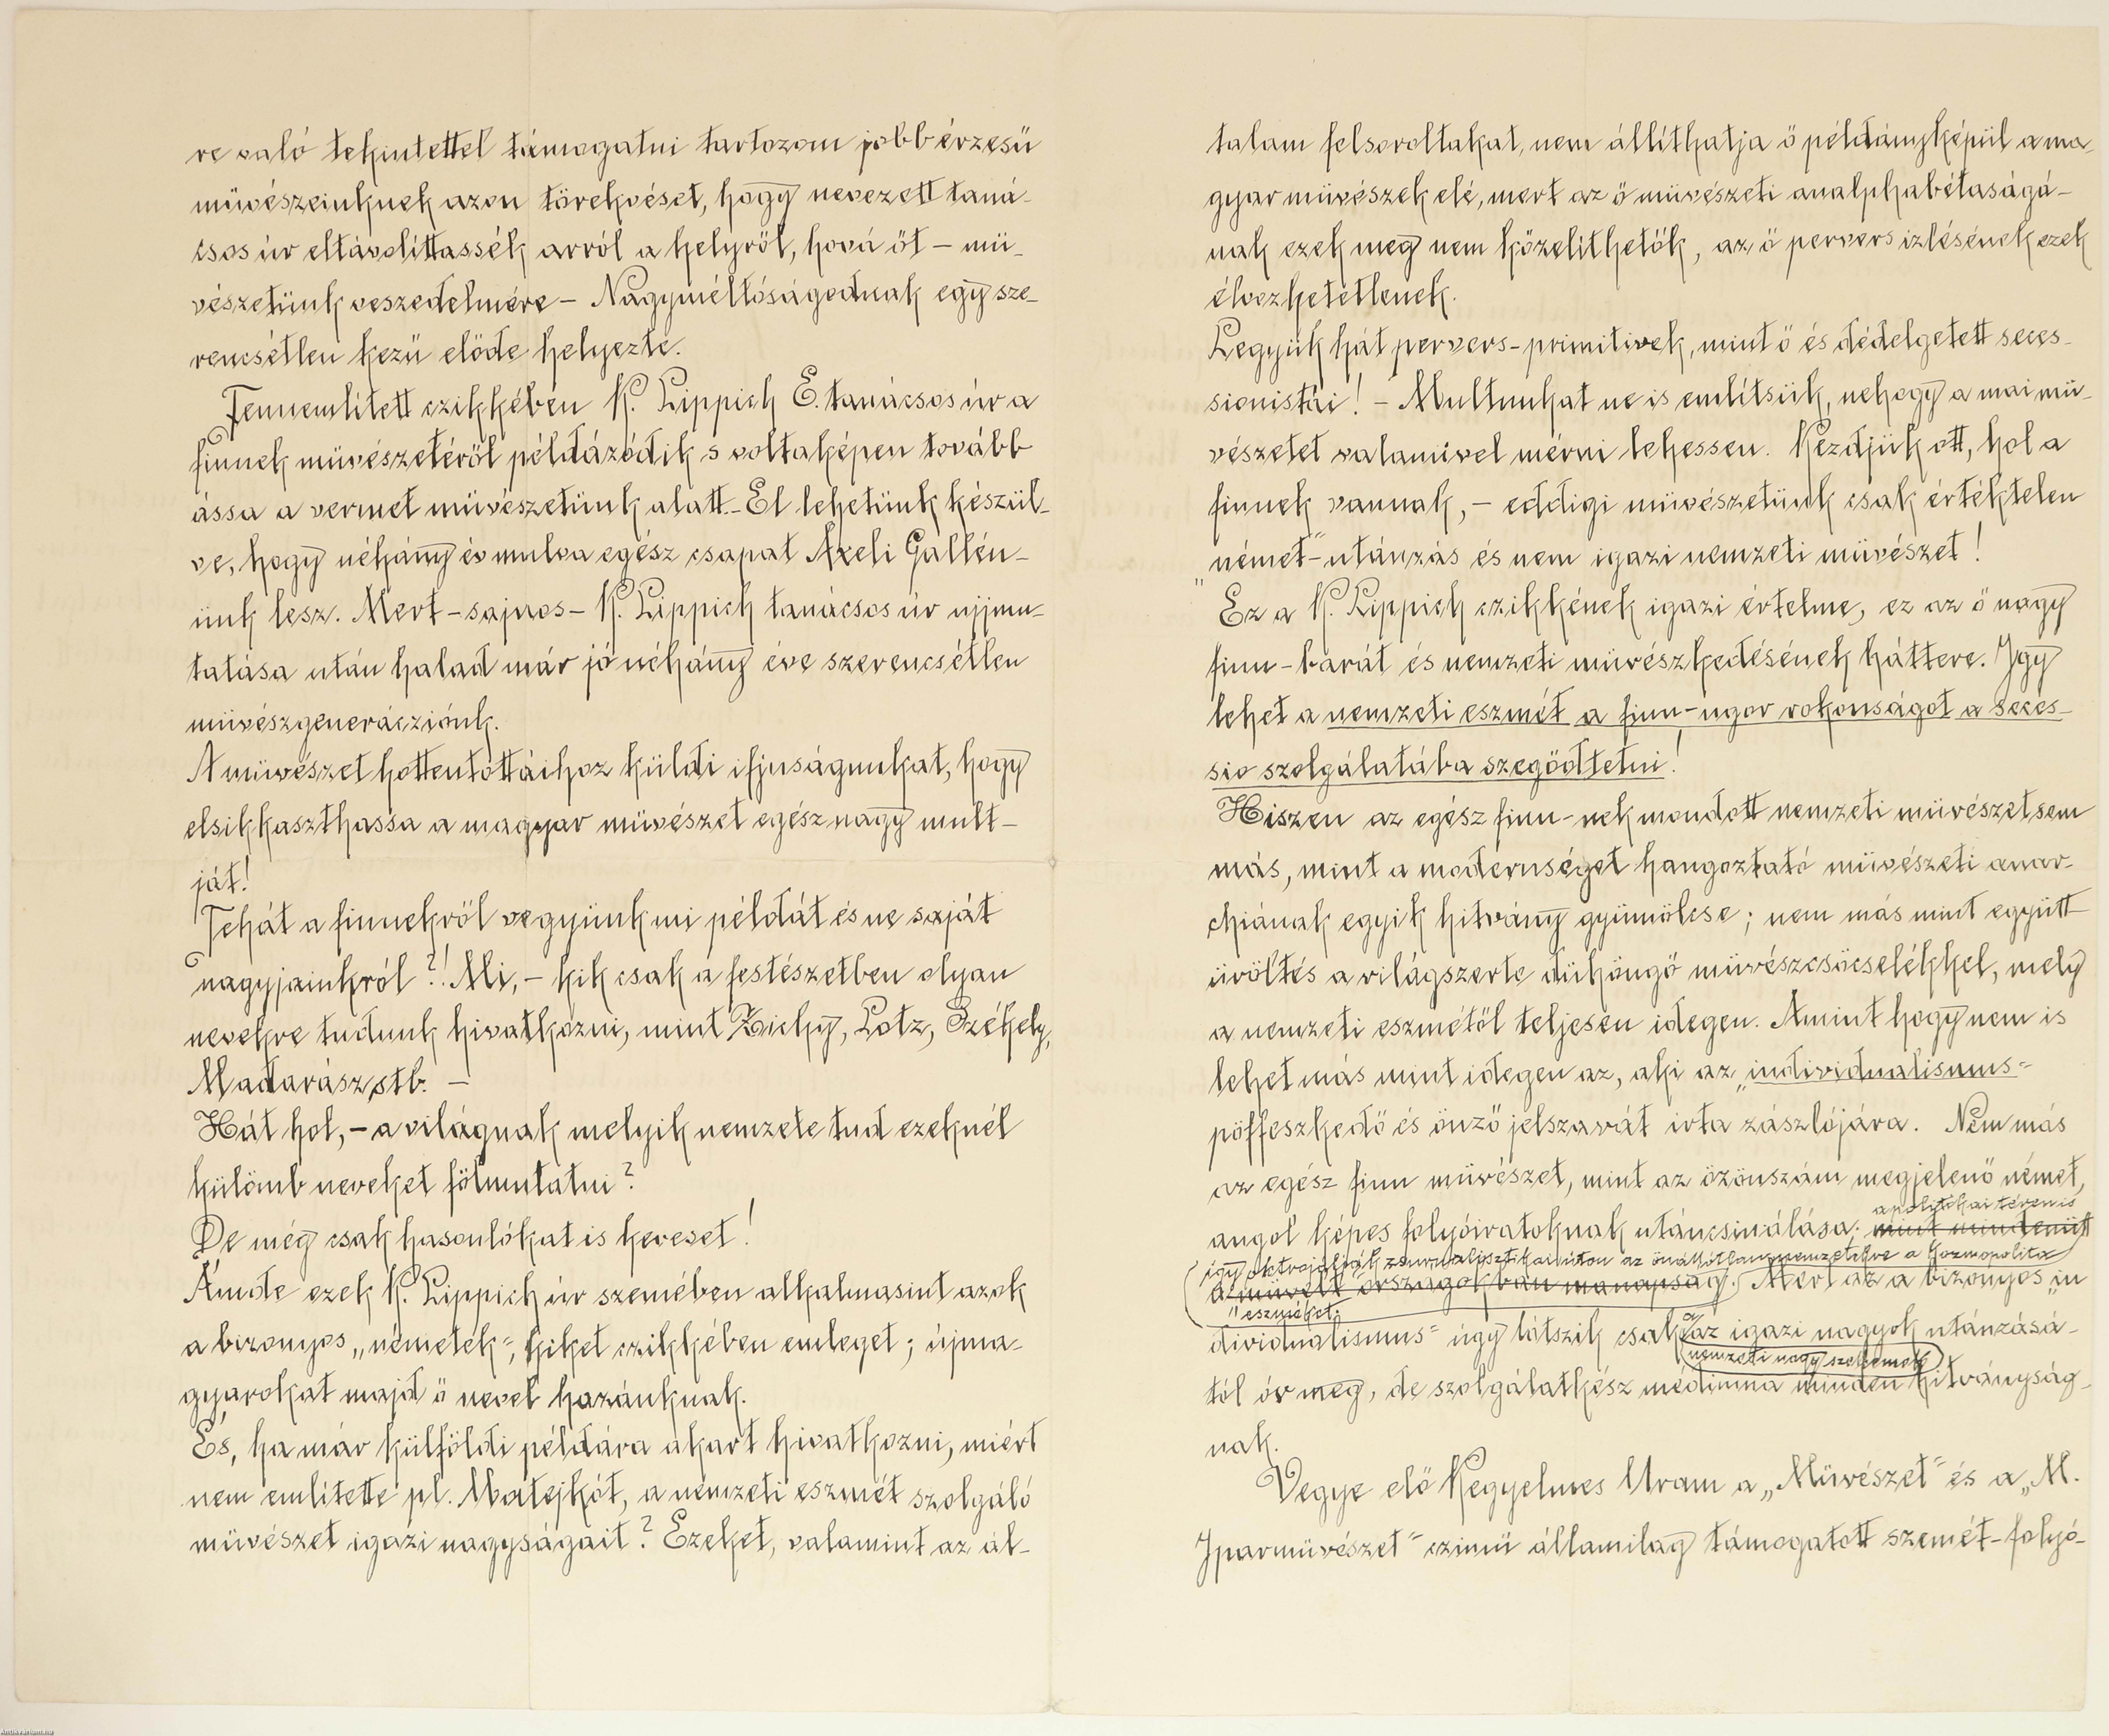 re való tekintettel támogatni tartozom jobb érzesü
művészeinknek azon törekvését, hogy nevezett taná-
csos úr eltávolíttassék arról a helyről, hová őt – mű-
vészetünk veszedelmére – Nagyméltóságodnak egy sze-
rencsétlen kezű előde helyezte.
Fennemlített czikkében K. Lippich E. tanácsos úr a
finnek művészetéről példázódik s voltaképen tovább
ássa a vermet művészetünk alatt. – El lehetünk készül-
ve, hogy néhány év mulva egész csapat Axeli Gallén-
ünk lesz. Mert – sajnos – K. Lippich tanácsos úr ujjmu-
tatása után halad már jó néhány éve szerencsétlen
művészgenerácziónk.
A művészet hottentottáihoz küldi ifjuságunkat, hogy
elsikkaszthassa a magyar művészet egész nagy mult-
ját!
Tehát a finnekről vegyünk mi példát és ne saját
nagyjainkról?! Mi, – kik csak a festészetben olyan
nevekre tudunk hivatkozni, mint Zichy, Lotz, Székely,
Madarász stb. –
Hát hol, – a világnak melyik nemzete tud ezeknél
külömb neveket fölmutatni?
De még csak hasonlókat is keveset!
Ámde ezek K. Lippich úr szemében alkalmasint azok
a bizonyos „németek", kiket czikkében emleget; újma-
gyarokat majd ő nevel hazánknak.
És, ha már külföldi példára akart hivatkozni, miért
nem említette pl. Matejkót, a nemzeti eszmét szolgáló
művészet igazi nagyságait? Ezeket, valamint az ál-
talam felsoroltakat, nem állíthatja ő példányképül a ma-
gyar művészek elé, mert az ő művészeti analphabétaságá-
nak ezek meg nem közelíthetők, az ő pervers izlésének ezek
élvezhetetlenek.
Legyük hát pervers-primitivek, mint ő és dédelgetett seces-
sionistái! – Multunkat ne is említsük, nehogy a mai mű-
vészetet valamivel mérni lehessen. Kezdjük ott, hol a
finnek vannak, – eddigi művészetünk csak értéktelen
„német"-utánzás és nem igazi nemzeti művészet!
Ez a K. Lippich czikkének igazi értelme, ez az ő nagy
finn-barát és nemzeti művészkedésének háttere. Igy
lehet a nemzeti eszmét a finn-ugor rokonságot a seces-
sio szolgálatába szegődtetni!
Hiszen az egész finn-nek mondott nemzeti művészet sem
más, mint a modernséget hangoztató művészeti anar-
chiának egyik hitvány gyümölcse; nem más mint együtt
üvöltés a világszerte dühöngő művészcsőcselékkel, mely
a nemzeti eszmétől teljesen idegen. Amint hogy nem is
lehet más mint idegen az, aki az „individualismus"
pöffeszkedő és önző jelszavát irta zászlójára. Nem más
az egész finn művészet, mint az özönszám megjelenő német,
angol képes folyóiratoknak utáncsinálása; mint mindenütt
a politikai téren is
így oktrojálják zsurnalisztikai úton az önállótlan nemzetekre a kozmopolita
a művelt országokban manapság. Mert az a bizonyos „in
"eszméket.
dividualismus" úgy látszik csak az igazi nagyok utánzásá-
nemzeti nagy szellemek
tól óv meg, de szolgálatkész médiuma minden hitványság-
nak.
Vegye elő Kegyelmes Uram a „Művészet" és a „M.
Iparművészet" czimű államilag támogatott szemét-folyó-
Antikvarium.hu